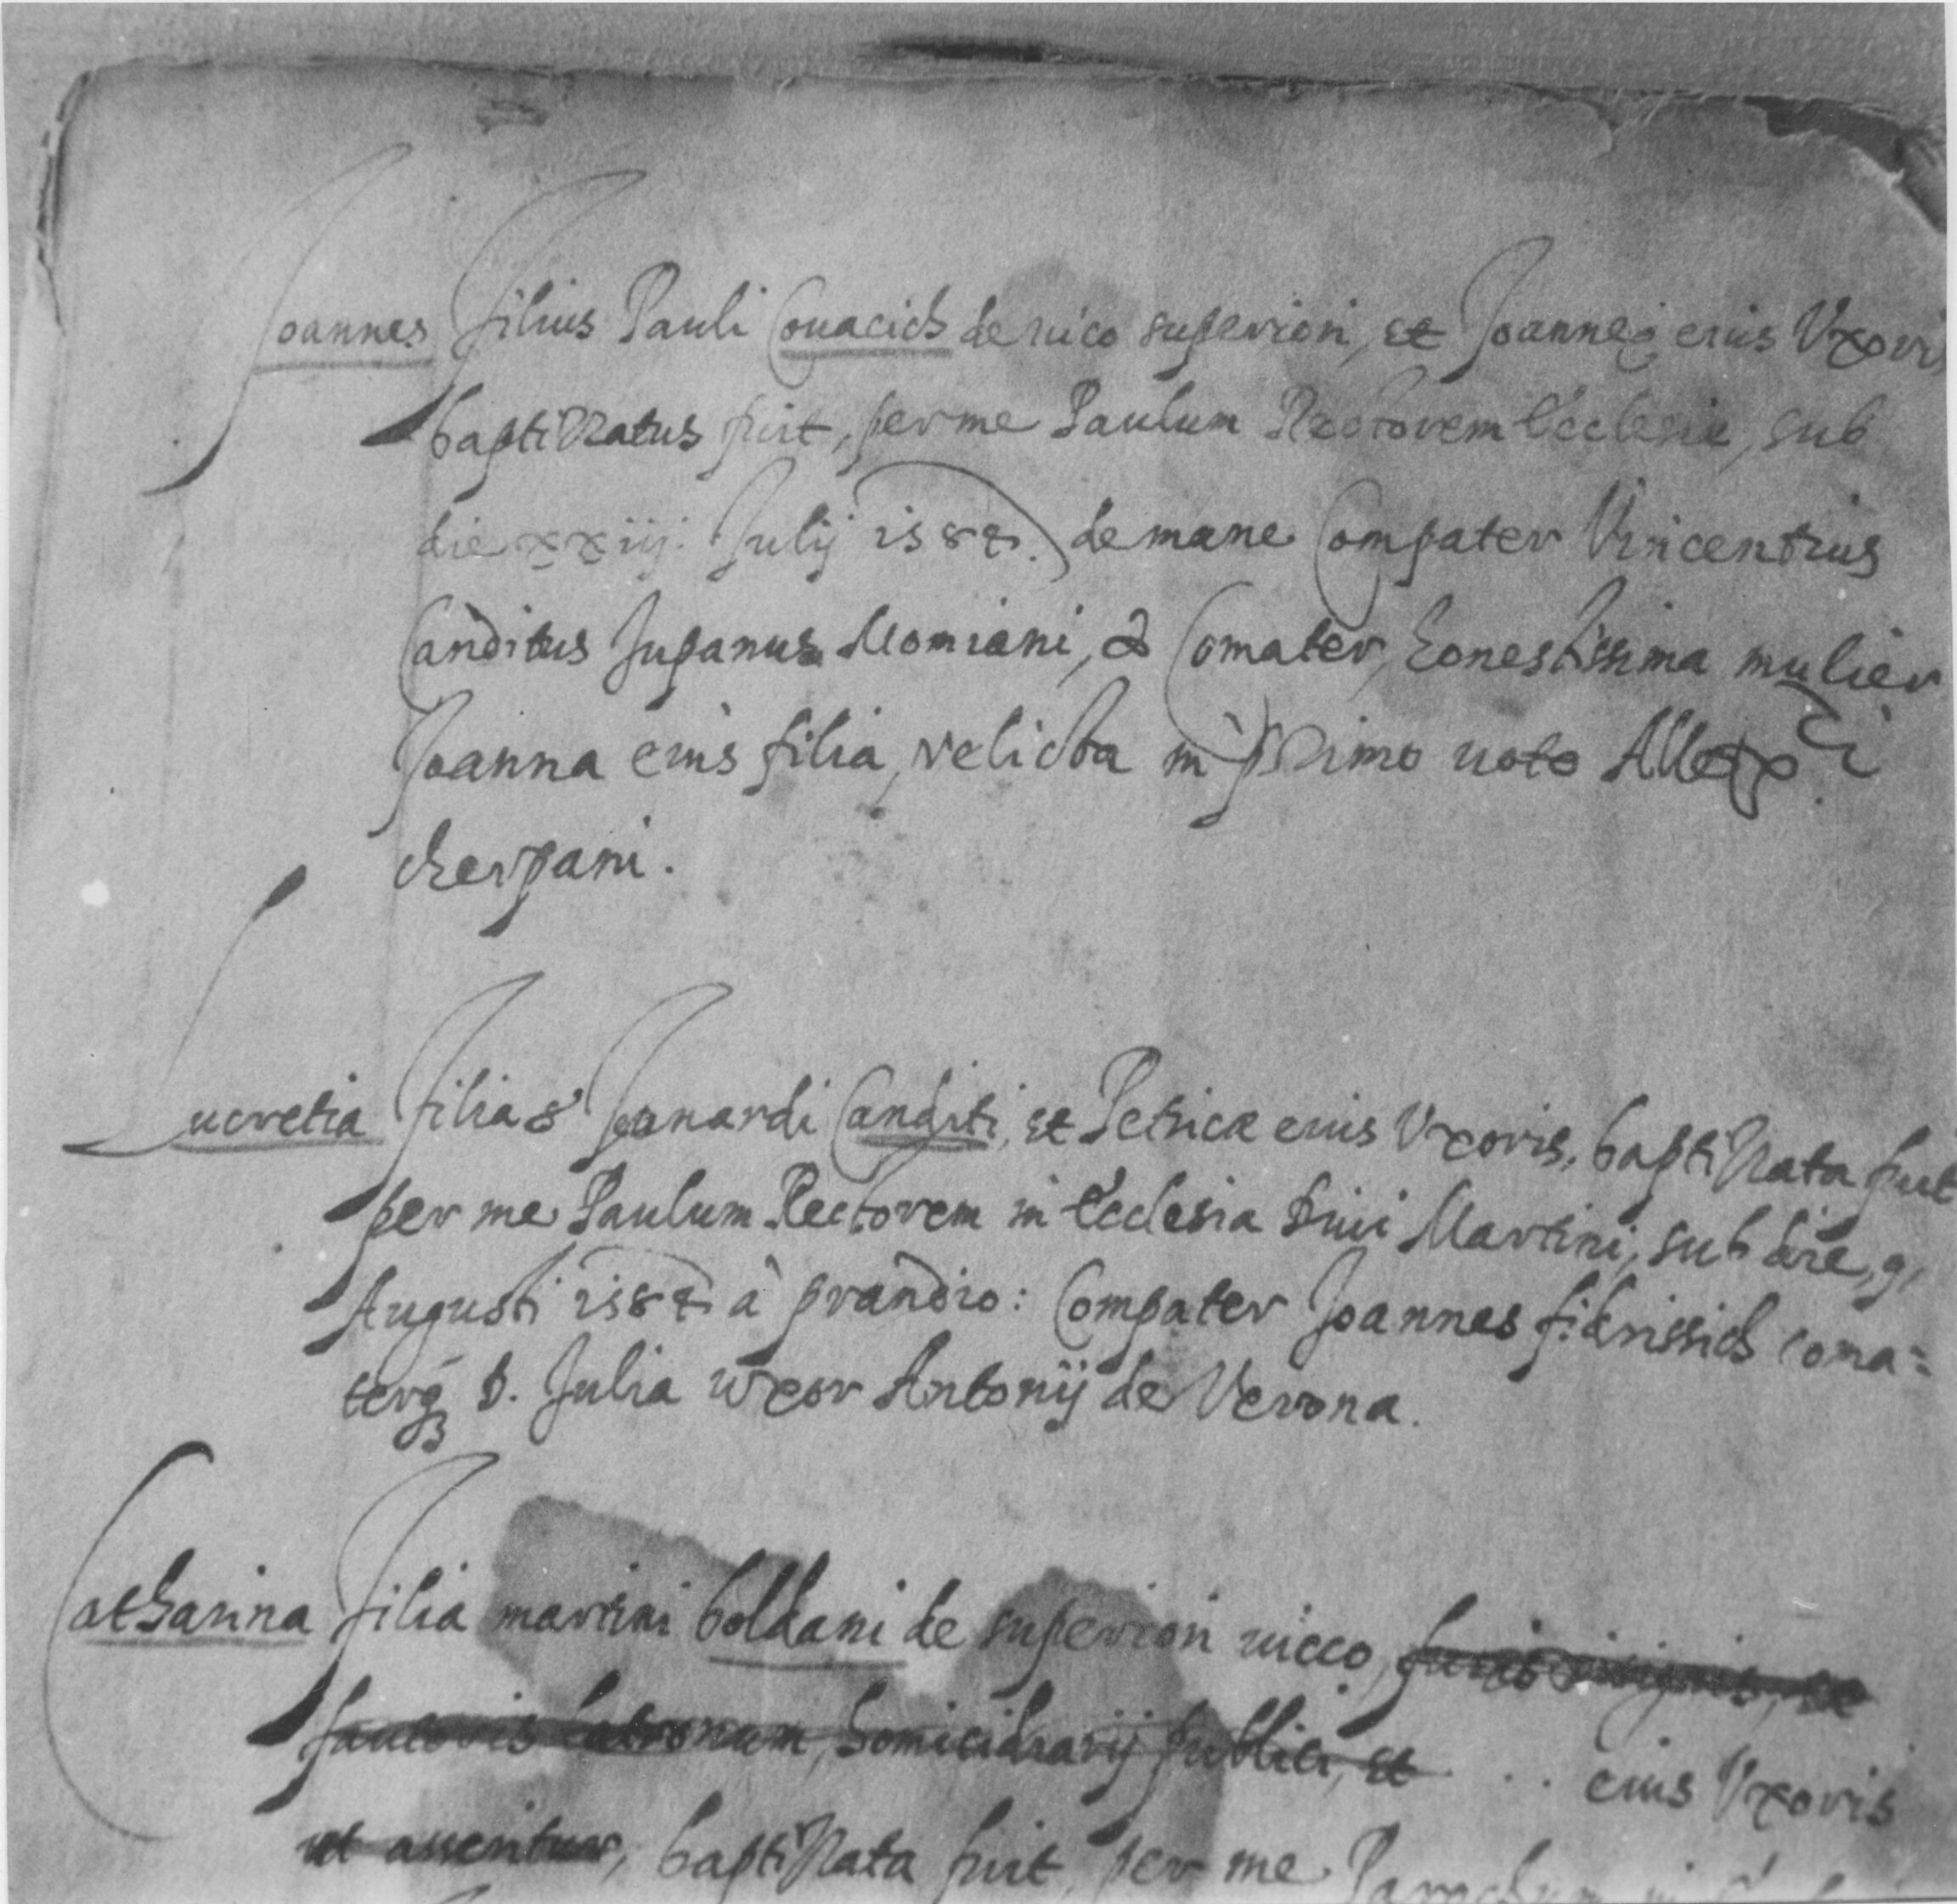 Joannes filius Pauli Couacich de uico superiori, et Joanneę eius Vxoris
baptiZatus fuit, per me Paulum Rectorem Ecclesie, sub
die xxiij. Julij 1587. de mane Compater Vincentius
Canditus Jupanus Momiani, & Comater, honestissima mulier
Joanna eius filia, relicta in voto
cherpani.
Lucretia filia Canditi, et Petricæ eius Vxoris, baptiZata fuit
per me Paulum Rectorem in Ecclesia Diui Martini, sub die, 9,
Augusti 1587 à prandio: Compater Joannes coma=
terq3 D. Julia uxor Antonij de Verona.
Catharina filia martini boldani de superiori uicco, et
fautoris latronum, homicidiarij publici, et . . eius Vxoris
ut asseritur, baptiZata fuit per me